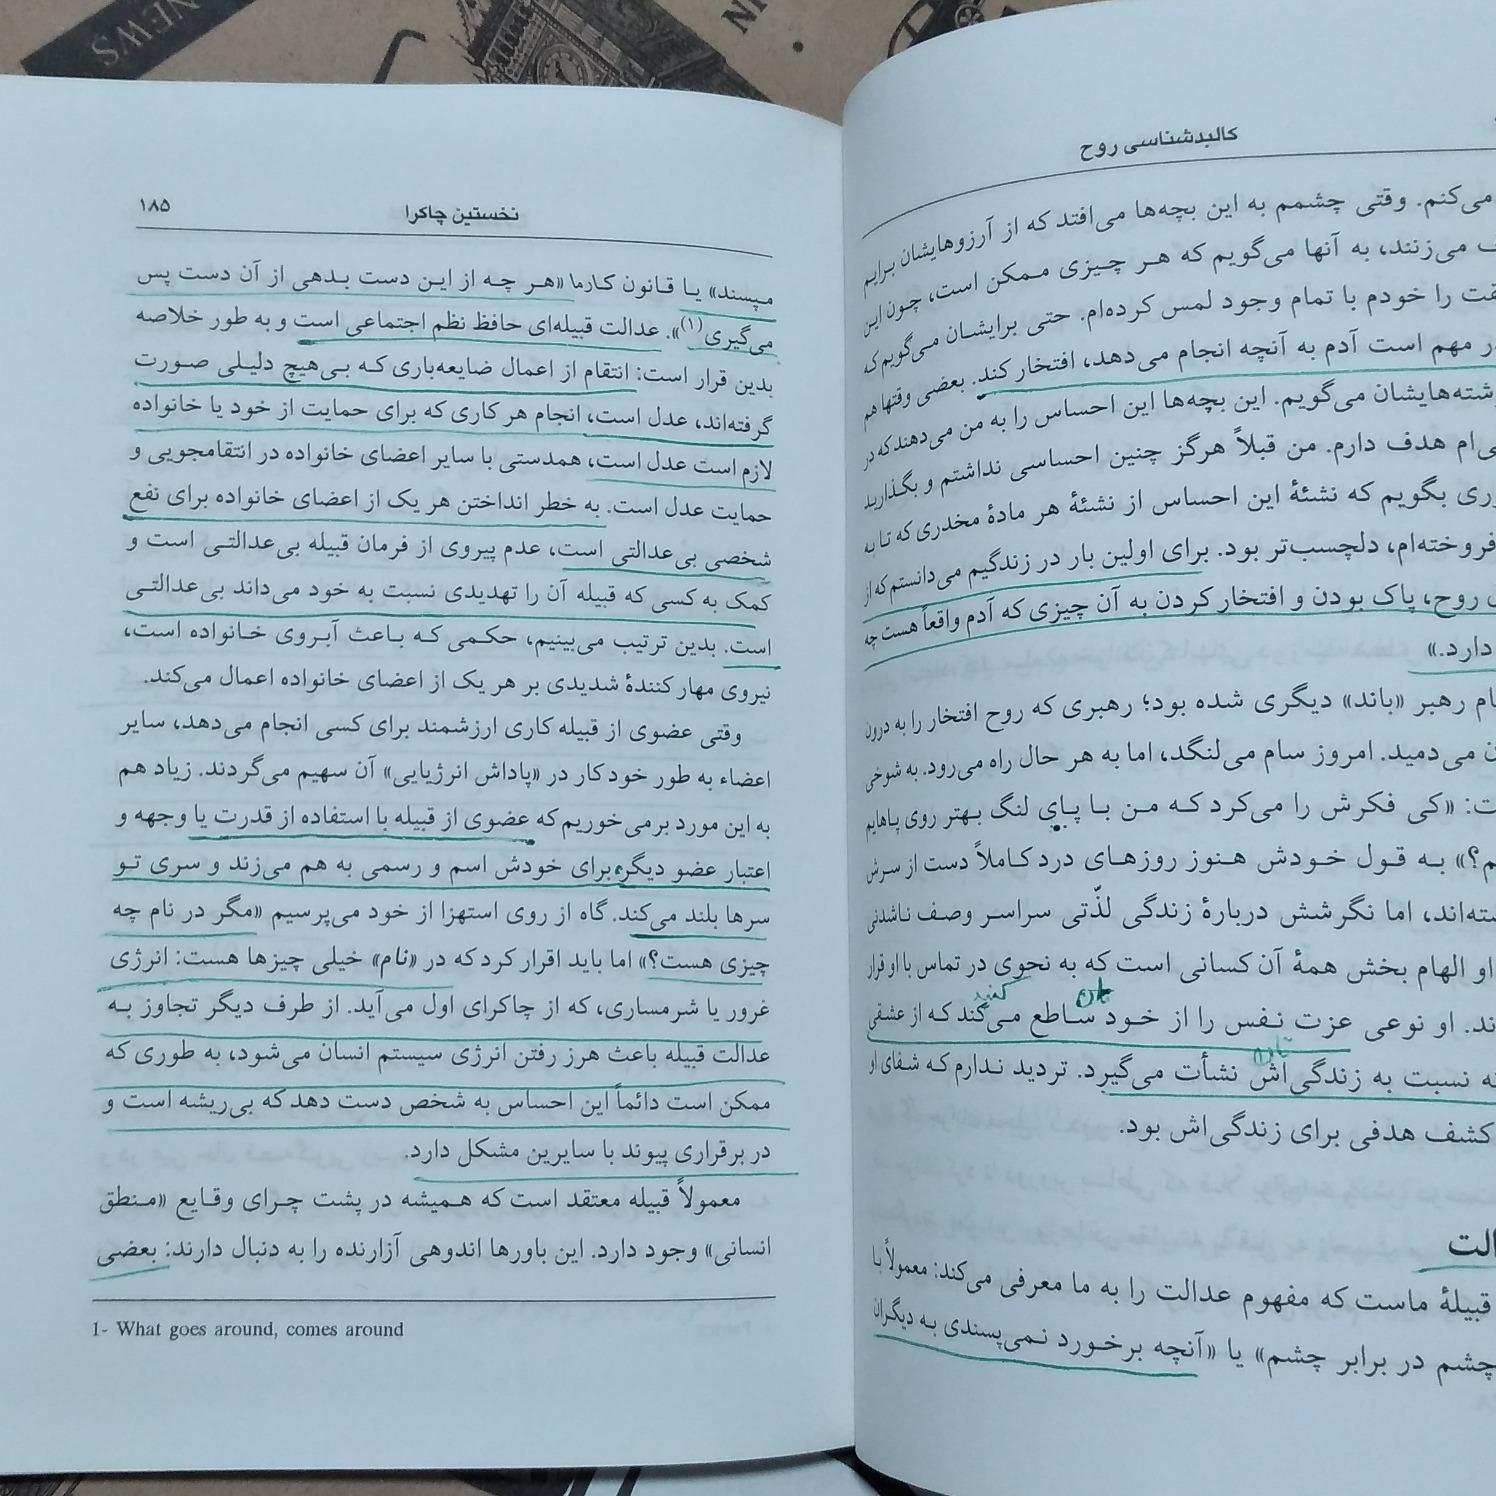 NEWS
کالبدشناسی روح
می‌کنم. وقتی چشمم به این بچه‌ها می‌افتد که از آرزوهایشان برایم
می‌زنند، به آنها می‌گویم که هر چیزی ممکن است، چون این
را خودم با تمام وجود لمس کرده‌ام. حتی برایشان می‌گویم که
مهم است آدم به آنچه انجام می‌دهد، افتخار کند. بعضی وقتها هم
می‌گویم. این بچه‌ها این احساس را به من می‌دهند که در
هدف دارم. من قبلاً هرگز چنین احساسی نداشتم و بگذارید
بگویم که نشئهٔ این احساس از نشئهٔ هر مادهٔ مخدری که تا به
فروخته‌ام، دلچسب‌تر بود. برای اولین بار در زندگیم می‌دانستم که از
روح، پاک بودن و افتخار کردن به آن چیزی که آدم واقعاً هست چه
دارد.»
رهبر «باند» دیگری شده بود؛ رهبری که روح افتخار را به درون
می‌دمید. امروز سام می‌لنگد، اما به هر حال راه می‌رود. به شوخی
«کی فکرش را می‌کرد که من با پای لنگ بهتر روی پاهایم
به قول خودش هنوز روزهای درد کاملاً دست از سرش
اما نگرشش دربارهٔ زندگی لذّتی سراسر وصف ناشدنی
او الهام بخش همهٔ آن کسانی است که به نحوی در تماس با او قرار
او نوعی عزت نفس را از خود ساطع می‌کند که از عشقی
نسبت به زندگی‌اش نشأت می‌گیرد. تردید ندارم که شفای او
کشف هدفی برای زندگی‌اش بود.
قبیلهٔ ماست که مفهوم عدالت را به ما معرفی می‌کند: معمولاً با
چشم در برابر چشم» یا «آنچه برخورد نمی‌پسندی به دیگران
نخستین چاکرا
۱۸۵
مپسند» یا قانون کارما «هر چه از این دست بدهی از آن دست پس
می‌گیری(۱)». عدالت قبیله‌ای حافظ نظم اجتماعی است و به طور خلاصه
بدین قرار است: انتقام از اعمال ضایعه‌باری که بی‌هیچ دلیلی صورت
گرفته‌اند، عدل است، انجام هر کاری که برای حمایت از خود یا خانواده
لازم است عدل است، همدستی با سایر اعضای خانواده در انتقامجویی و
حمایت عدل است. به خطر انداختن هر یک از اعضای خانواده برای نفع
شخصی بی‌عدالتی است، عدم پیروی از فرمان قبیله بی‌عدالتی است و
کمک به کسی که قبیله آن را تهدیدی نسبت به خود می‌داند بی‌عدالتی
است. بدین ترتیب می‌بینیم، حکمی که باعث آبروی خانواده است،
نیروی مهارکنندهٔ شدیدی بر هر یک از اعضای خانواده اعمال می‌کند.
وقتی عضوی از قبیله کاری ارزشمند برای کسی انجام می‌دهد، سایر
اعضاء به طور خودکار در «پاداش انرژیایی» آن سهیم می‌گردند. زیاد هم
به این مورد برمی‌خوریم که عضوی از قبیله با استفاده از قدرت یا وجهه و
اعتبار عضو دیگر، برای خودش اسم و رسمی به هم می‌زند و سری تو
سرها بلند می‌کند. گاه از روی استهزا از خود می‌پرسیم «مگر در نام چه
چیزی هست؟» اما باید اقرار کرد که در «نام» خیلی چیزها هست: انرژی
غرور یا شرمساری، که از چاکرای اول می‌آید. از طرف دیگر تجاوز به
عدالت قبیله باعث هرز رفتن انرژی سیستم انسان می‌شود، به طوری که
ممکن است دائماً این احساس به شخص دست دهد که بی‌ریشه است و
در برقراری پیوند با سایرین مشکل دارد.
معمولاً قبیله معتقد است که همیشه در پشت چرای وقایع «منطق
انسانی» وجود دارد. این باورها اندوهی آزارنده را به دنبال دارند: بعضی
1- What goes around, comes around